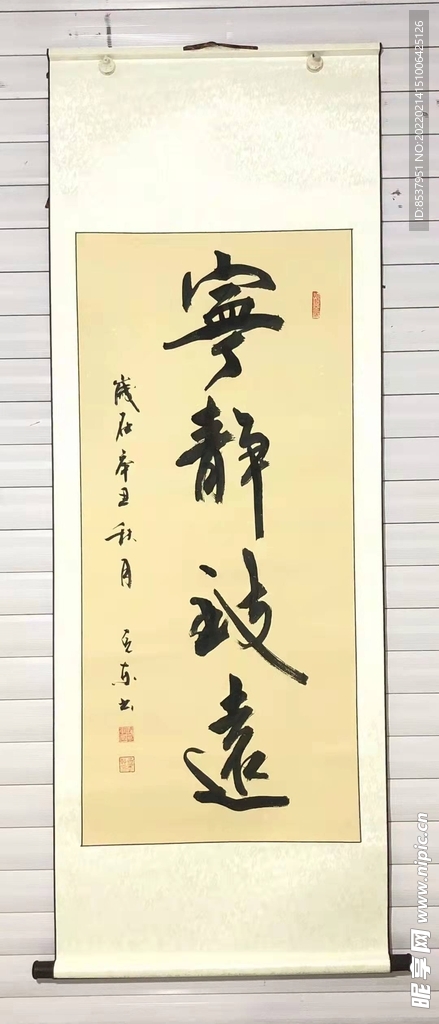 寧靜致遠
歲在辛丑秋月
东书
ID:8537951 NO:20220214151006425126
昵享网 www.nipic.cn